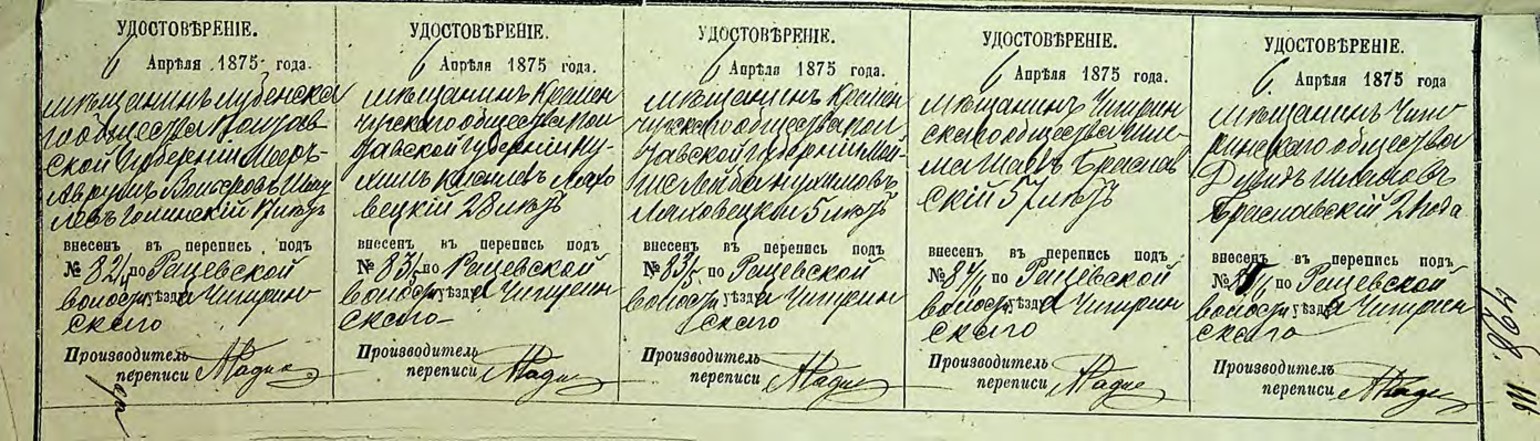 УДОСТОВѢРЕНІЕ.
6 Апрѣля 1875 года.
мѣщанинъ Лубенска
го общества Полтав
ской Губерніи Меръ-
Аврумъ Волькровъ
левъ 17 лѣтъ
внесенъ въ перепись подъ
№ 82/4 по Рацевской
волости уѣзда Чигирин
скаго
Производитель
переписи
УДОСТОВѢРЕНІЕ.
6 Апрѣля 1875 года.
мѣщанинъ Кремен
чугскаго общества Пол
тавской губерніи Ну-
химъ Лехо
вецкій 28 лѣтъ
внесенъ въ перепись подъ
№ 83/5 по Рацевской
волости уѣзда Чигирин
скаго
Производитель
переписи
УДОСТОВѢРЕНІЕ.
6 Апрѣля 1875 года.
мѣщанинъ Кремен
чугскаго общества Пол
тавской губерніи Мой-
ше Лейба Нухимовъ
Ляховецкій 5 лѣтъ
внесенъ въ перепись подъ
№ 83/5 по Рацевской
волости уѣзда Чигирин
скаго
Производитель
переписи
УДОСТОВѢРЕНІЕ.
6 Апрѣля 1875 года.
мѣщанинъ Чигирин
скаго общества Шле-
ма Браслав
скій 57 лѣтъ
внесенъ въ перепись подъ
№ 84/6 по Рацевской
волости уѣзда Чигирин
скаго
Производитель
переписи
УДОСТОВѢРЕНІЕ.
6 Апрѣля 1875 года
мѣщанинъ Чиги
ринскаго общества
Дувидъ Шлемовъ
Браславскій 21 года
внесенъ въ перепись подъ
№ по Рацевской
волости уѣзда Чигирин
скаго
Производитель
переписи